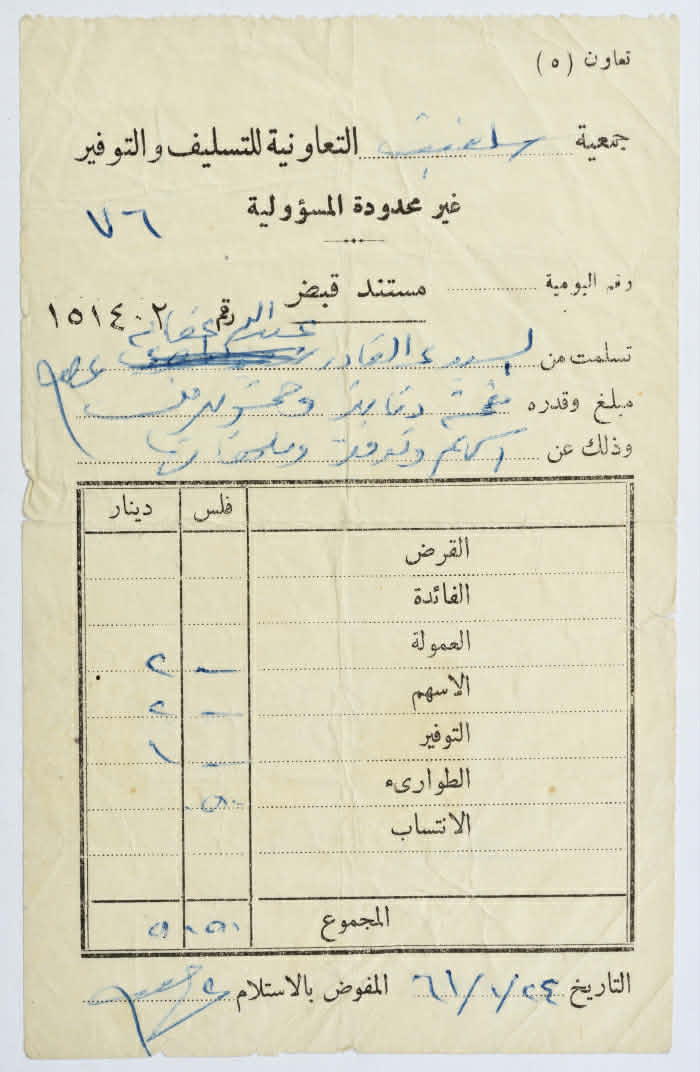 تعاون (٥)
جمعية سلفيت التعاونية للتسليف والتوفير
غير محدودة المسؤولية
٧٦
رقم اليومية
مستند قبض
رقم ١٥١٤٠٢
تسلمت من السيد عبد القادر
مبلغ وقدره خمسة دنانير وخمسون فلس
وذلك عن اسهم وتوفير
فلس دينار
القرض
الفائدة
العمولة
الاسهم — ٢
التوفير — ٢
الطوارىء — ١
الانتساب ٥٠
المجموع ٥٠ ٥
التاريخ ٢٤/١/٦١ المفوض بالاستلام